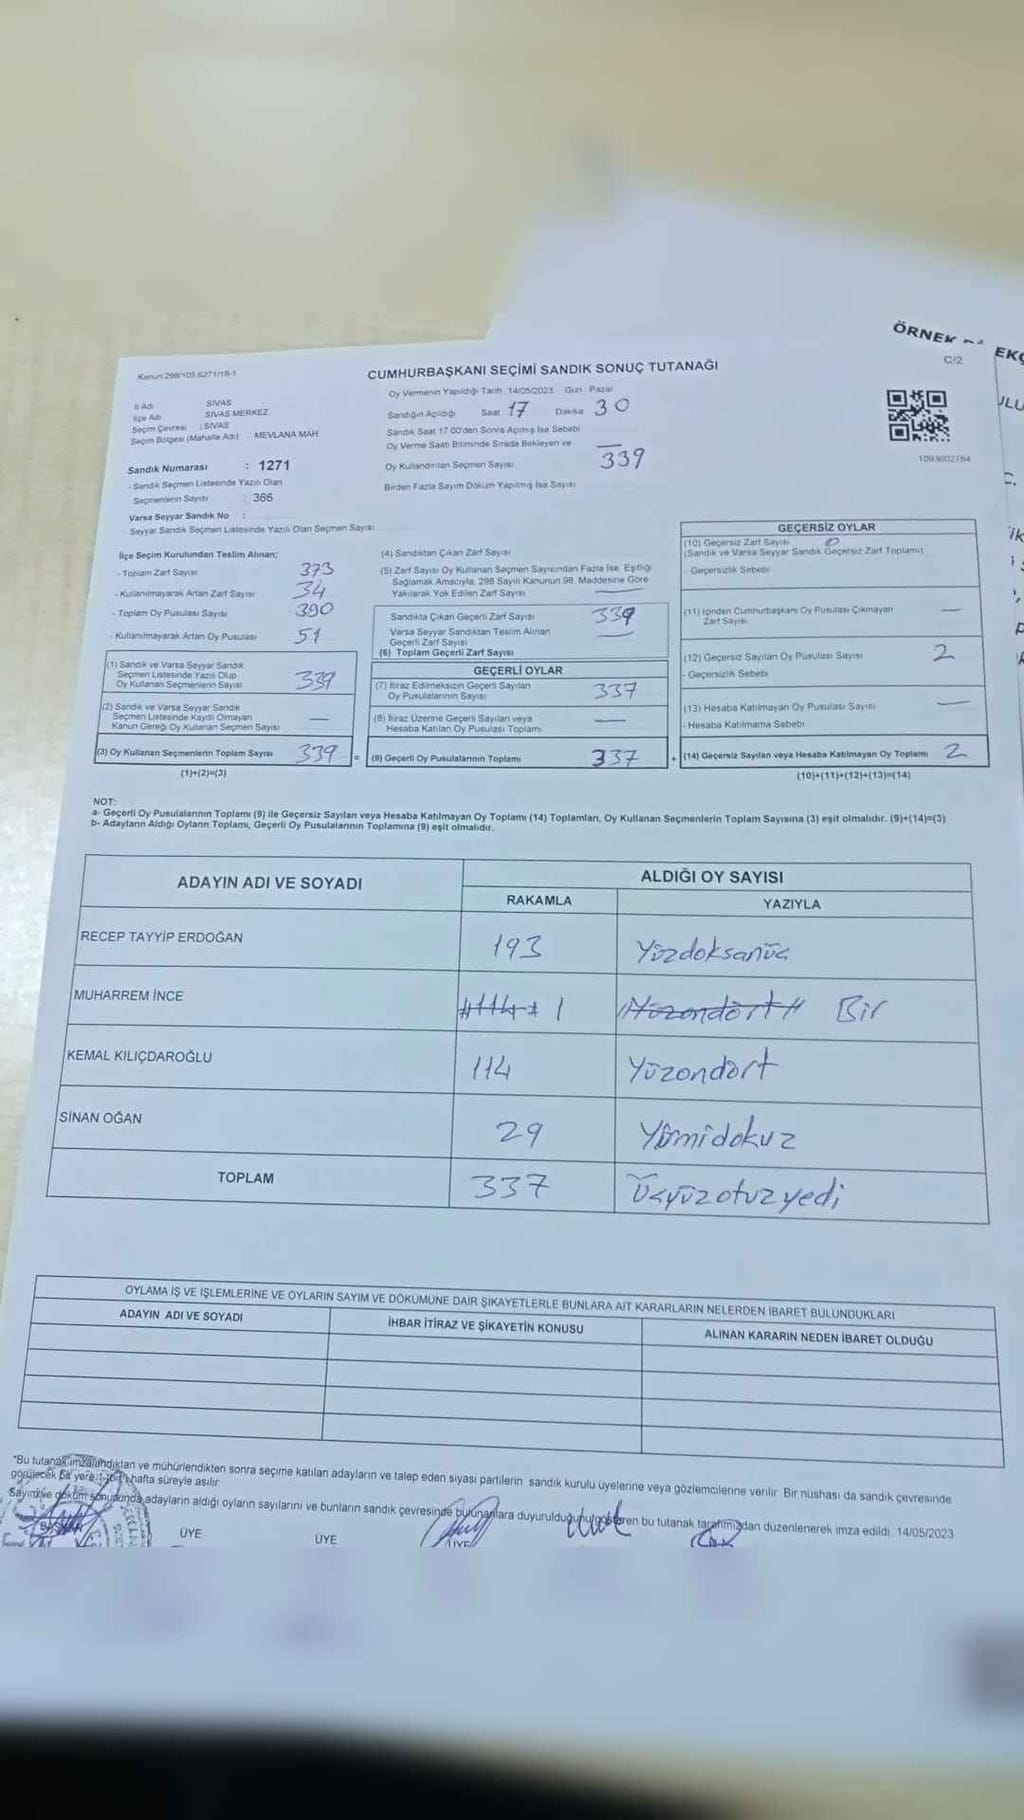 ÖRNEK
C/2
Kanun 298/105,6271/18-1
CUMHURBAŞKANI SEÇİMİ SANDIK SONUÇ TUTANAĞI
Oy Vermenin Yapıldığı Tarih 14/05/2023 Gün Pazar
İl Adı SİVAS
İlçe Adı SİVAS MERKEZ
Seçim Çevresi : SİVAS
Seçim Bölgesi (Mahalle Adı) MEVLANA MAH
Sandığın Açıldığı Saat 17 Dakika 30
Sandık Saat 17 00'den Sonra Açılmış İse Sebebi
Oy Verme Saati Bitiminde Sırada Bekleyen ve
Oy Kullandırılan Seçmen Sayısı 339
Birden Fazla Sayım Döküm Yapılmış İse Sayısı
1093602764
Sandık Numarası : 1271
- Sandık Seçmen Listesinde Yazılı Olan
Seçmenlerin Sayısı : 366
Varsa Seyyar Sandık No :
Seyyar Sandık Seçmen Listesinde Yazılı Olan Seçmen Sayısı
İlçe Seçim Kurulundan Teslim Alınan;
- Toplam Zarf Sayısı 373
- Kullanılmayarak Artan Zarf Sayısı 34
- Toplam Oy Pusulası Sayısı 390
- Kullanılmayarak Artan Oy Pusulası 51
(1) Sandık ve Varsa Seyyar Sandık
Seçmen Listesinde Yazılı Olup
Oy Kullanan Seçmenlerin Sayısı 339
(2) Sandık ve Varsa Seyyar Sandık
Seçmen Listesinde Kayıtlı Olmayan
Kanun Gereği Oy Kullanan Seçmen Sayısı —
(3) Oy Kullanan Seçmenlerin Toplam Sayısı 339 =
(1)+(2)=(3)
(4) Sandıktan Çıkan Zarf Sayısı
(5) Zarf Sayısı Oy Kullanan Seçmen Sayısından Fazla İse, Eşitliği
Sağlamak Amacıyla, 298 Sayılı Kanunun 98. Maddesine Göre
Yakılarak Yok Edilen Zarf Sayısı —
Sandıkta Çıkan Geçerli Zarf Sayısı 339
Varsa Seyyar Sandıktan Teslim Alınan
Geçerli Zarf Sayısı —
(6) Toplam Geçerli Zarf Sayısı
GEÇERLİ OYLAR
(7) İtiraz Edilmeksizin Geçerli Sayılan
Oy Pusulalarının Sayısı 337
(8) İtiraz Üzerine Geçerli Sayılan veya
Hesaba Katılan Oy Pusulası Toplamı —
(9) Geçerli Oy Pusulalarının Toplamı 337 +
GEÇERSİZ OYLAR
(10) Geçersiz Zarf Sayısı 0
(Sandık ve Varsa Seyyar Sandık Geçersiz Zarf Toplamı)
Geçersizlik Sebebi
(11) İçinden Cumhurbaşkanı Oy Pusulası Çıkmayan
Zarf Sayısı —
(12) Geçersiz Sayılan Oy Pusulası Sayısı 2
- Geçersizlik Sebebi
(13) Hesaba Katılmayan Oy Pusulası Sayısı —
- Hesaba Katılmama Sebebi
(14) Geçersiz Sayılan veya Hesaba Katılmayan Oy Toplamı 2
(10)+(11)+(12)+(13)=(14)
NOT:
a- Geçerli Oy Pusulalarının Toplamı (9) ile Geçersiz Sayılan veya Hesaba Katılmayan Oy Toplamı (14) Toplamları, Oy Kullanan Seçmenlerin Toplam Sayısına (3) eşit olmalıdır. (9)+(14)=(3)
b- Adayların Aldığı Oyların Toplamı, Geçerli Oy Pusulalarının Toplamına (9) eşit olmalıdır.
ADAYIN ADI VE SOYADI ALDIĞI OY SAYISI
RAKAMLA YAZIYLA
RECEP TAYYİP ERDOĞAN 193 Yüzdoksanüç
MUHARREM İNCE #114# 1 //Yüzondört// Bir
KEMAL KILIÇDAROĞLU 114 Yüzondört
SİNAN OĞAN 29 Yirmidokuz
TOPLAM 337 Üçyüzotuzyedi
OYLAMA İŞ VE İŞLEMLERİNE VE OYLARIN SAYIM VE DÖKÜMÜNE DAİR ŞİKAYETLERLE BUNLARA AİT KARARLARIN NELERDEN İBARET BULUNDUKLARI
ADAYIN ADI VE SOYADI İHBAR İTİRAZ VE ŞİKAYETİN KONUSU ALINAN KARARIN NEDEN İBARET OLDUĞU
"Bu tutanak imzalandıktan ve mühürlendikten sonra seçime katılan adayların ve talep eden siyasi partilerin sandık kurulu üyelerine veya gözlemcilerine verilir. Bir nüshası da sandık çevresinde
görülecek bir yere 1 (bir) hafta süreyle asılır.
Sayım ve döküm sonucunda adayların aldığı oyların sayılarını ve bunların sandık çevresinde bulunanlara duyurulduğunu gösteren bu tutanak tarafımızdan düzenlenerek imza edildi. 14/05/2023
BAŞKAN ÜYE ÜYE ÜYE